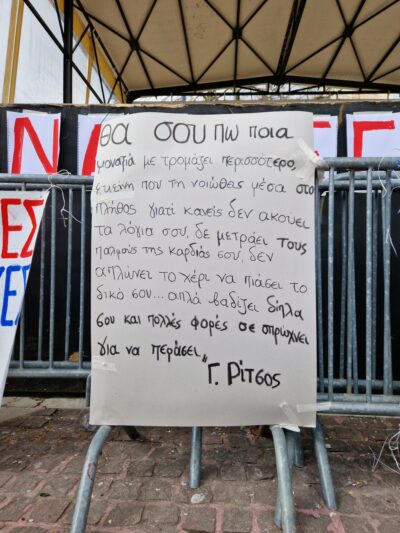 ΝΑ
ΓΓ
ΕΣ
ΕΣ
Θα σου πω ποια
μοναξιά με τρομάζει περισσότερο,
Εκείνη που τη νοιώθεις μέσα στο
πλήθος γιατί κανείς δεν ακούει
τα λόγια σου, δε μετράει τους
παλμούς της καρδιάς σου, δεν
απλώνει το χέρι να πιάσει το
δικό σου... απλά βαδίζει δίπλα
σου και πολλές φορές σε σπρώχνει
για να περάσει"
Γ. Ρίτσος